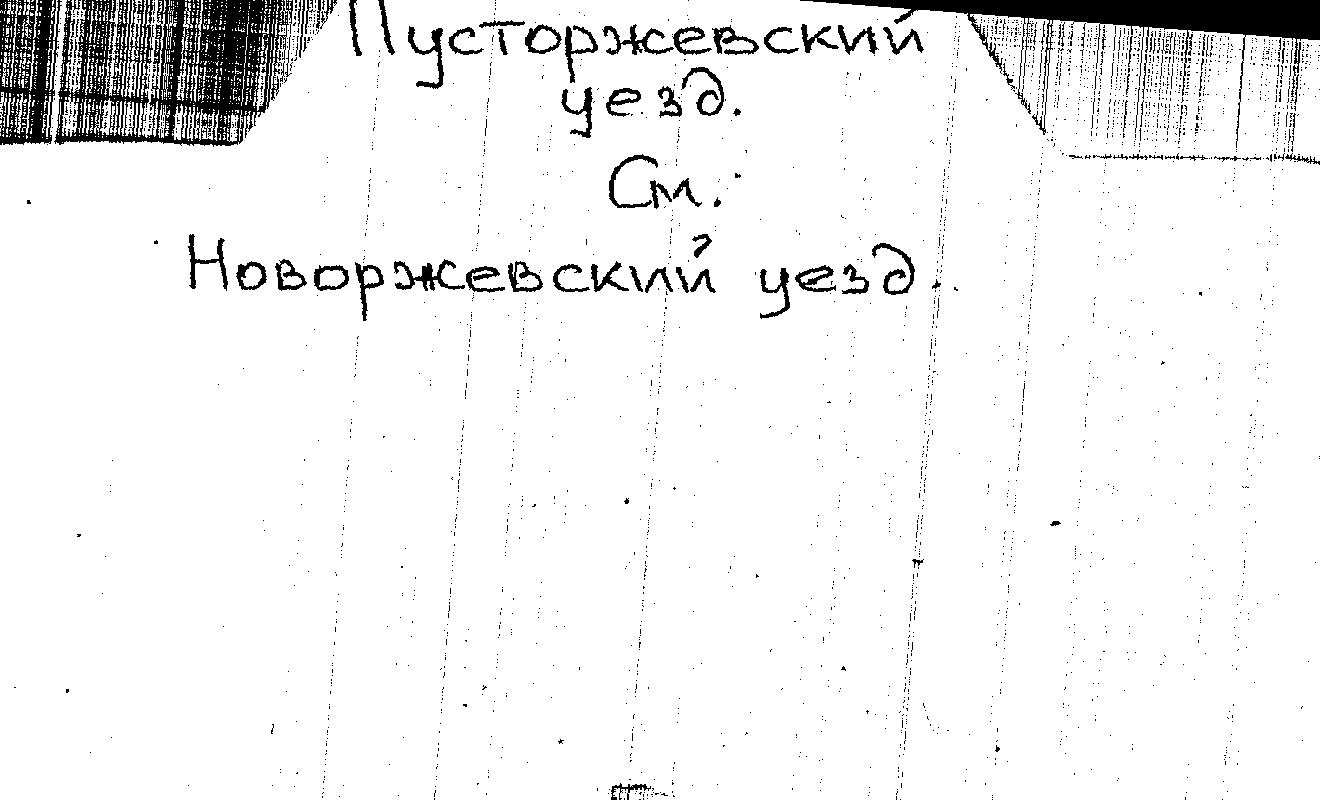 Пусторжевский
уезд.
См.:
Новоржевский уезд.